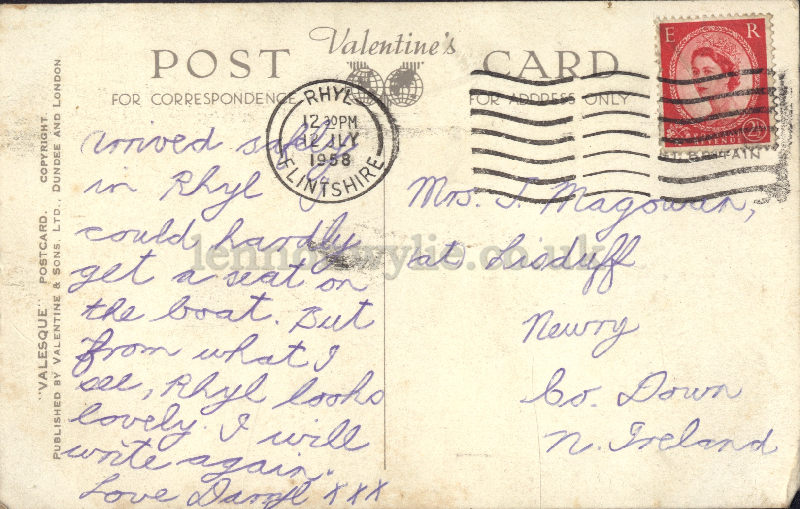 Valentine's
POST CARD
FOR CORRESPONDENCE
FOR ADDRESS ONLY
"VALESQUE" POSTCARD. COPYRIGHT.
PUBLISHED BY VALENTINE & SONS, LTD., DUNDEE AND LONDON
RHYL
12 30PM
12 JLY
1958
FLINTSHIRE
E R
REVENUE 2½
arrived safely
in Rhyl I
could hardly
get a seat on
the boat. But
from what I
see, Rhyl looks
lovely. I will
write again.
Love Darryl xxx
Mrs. T. Magowan,
at Lisduff
Newry
Co. Down
N. Ireland
lennonwylie.co.uk